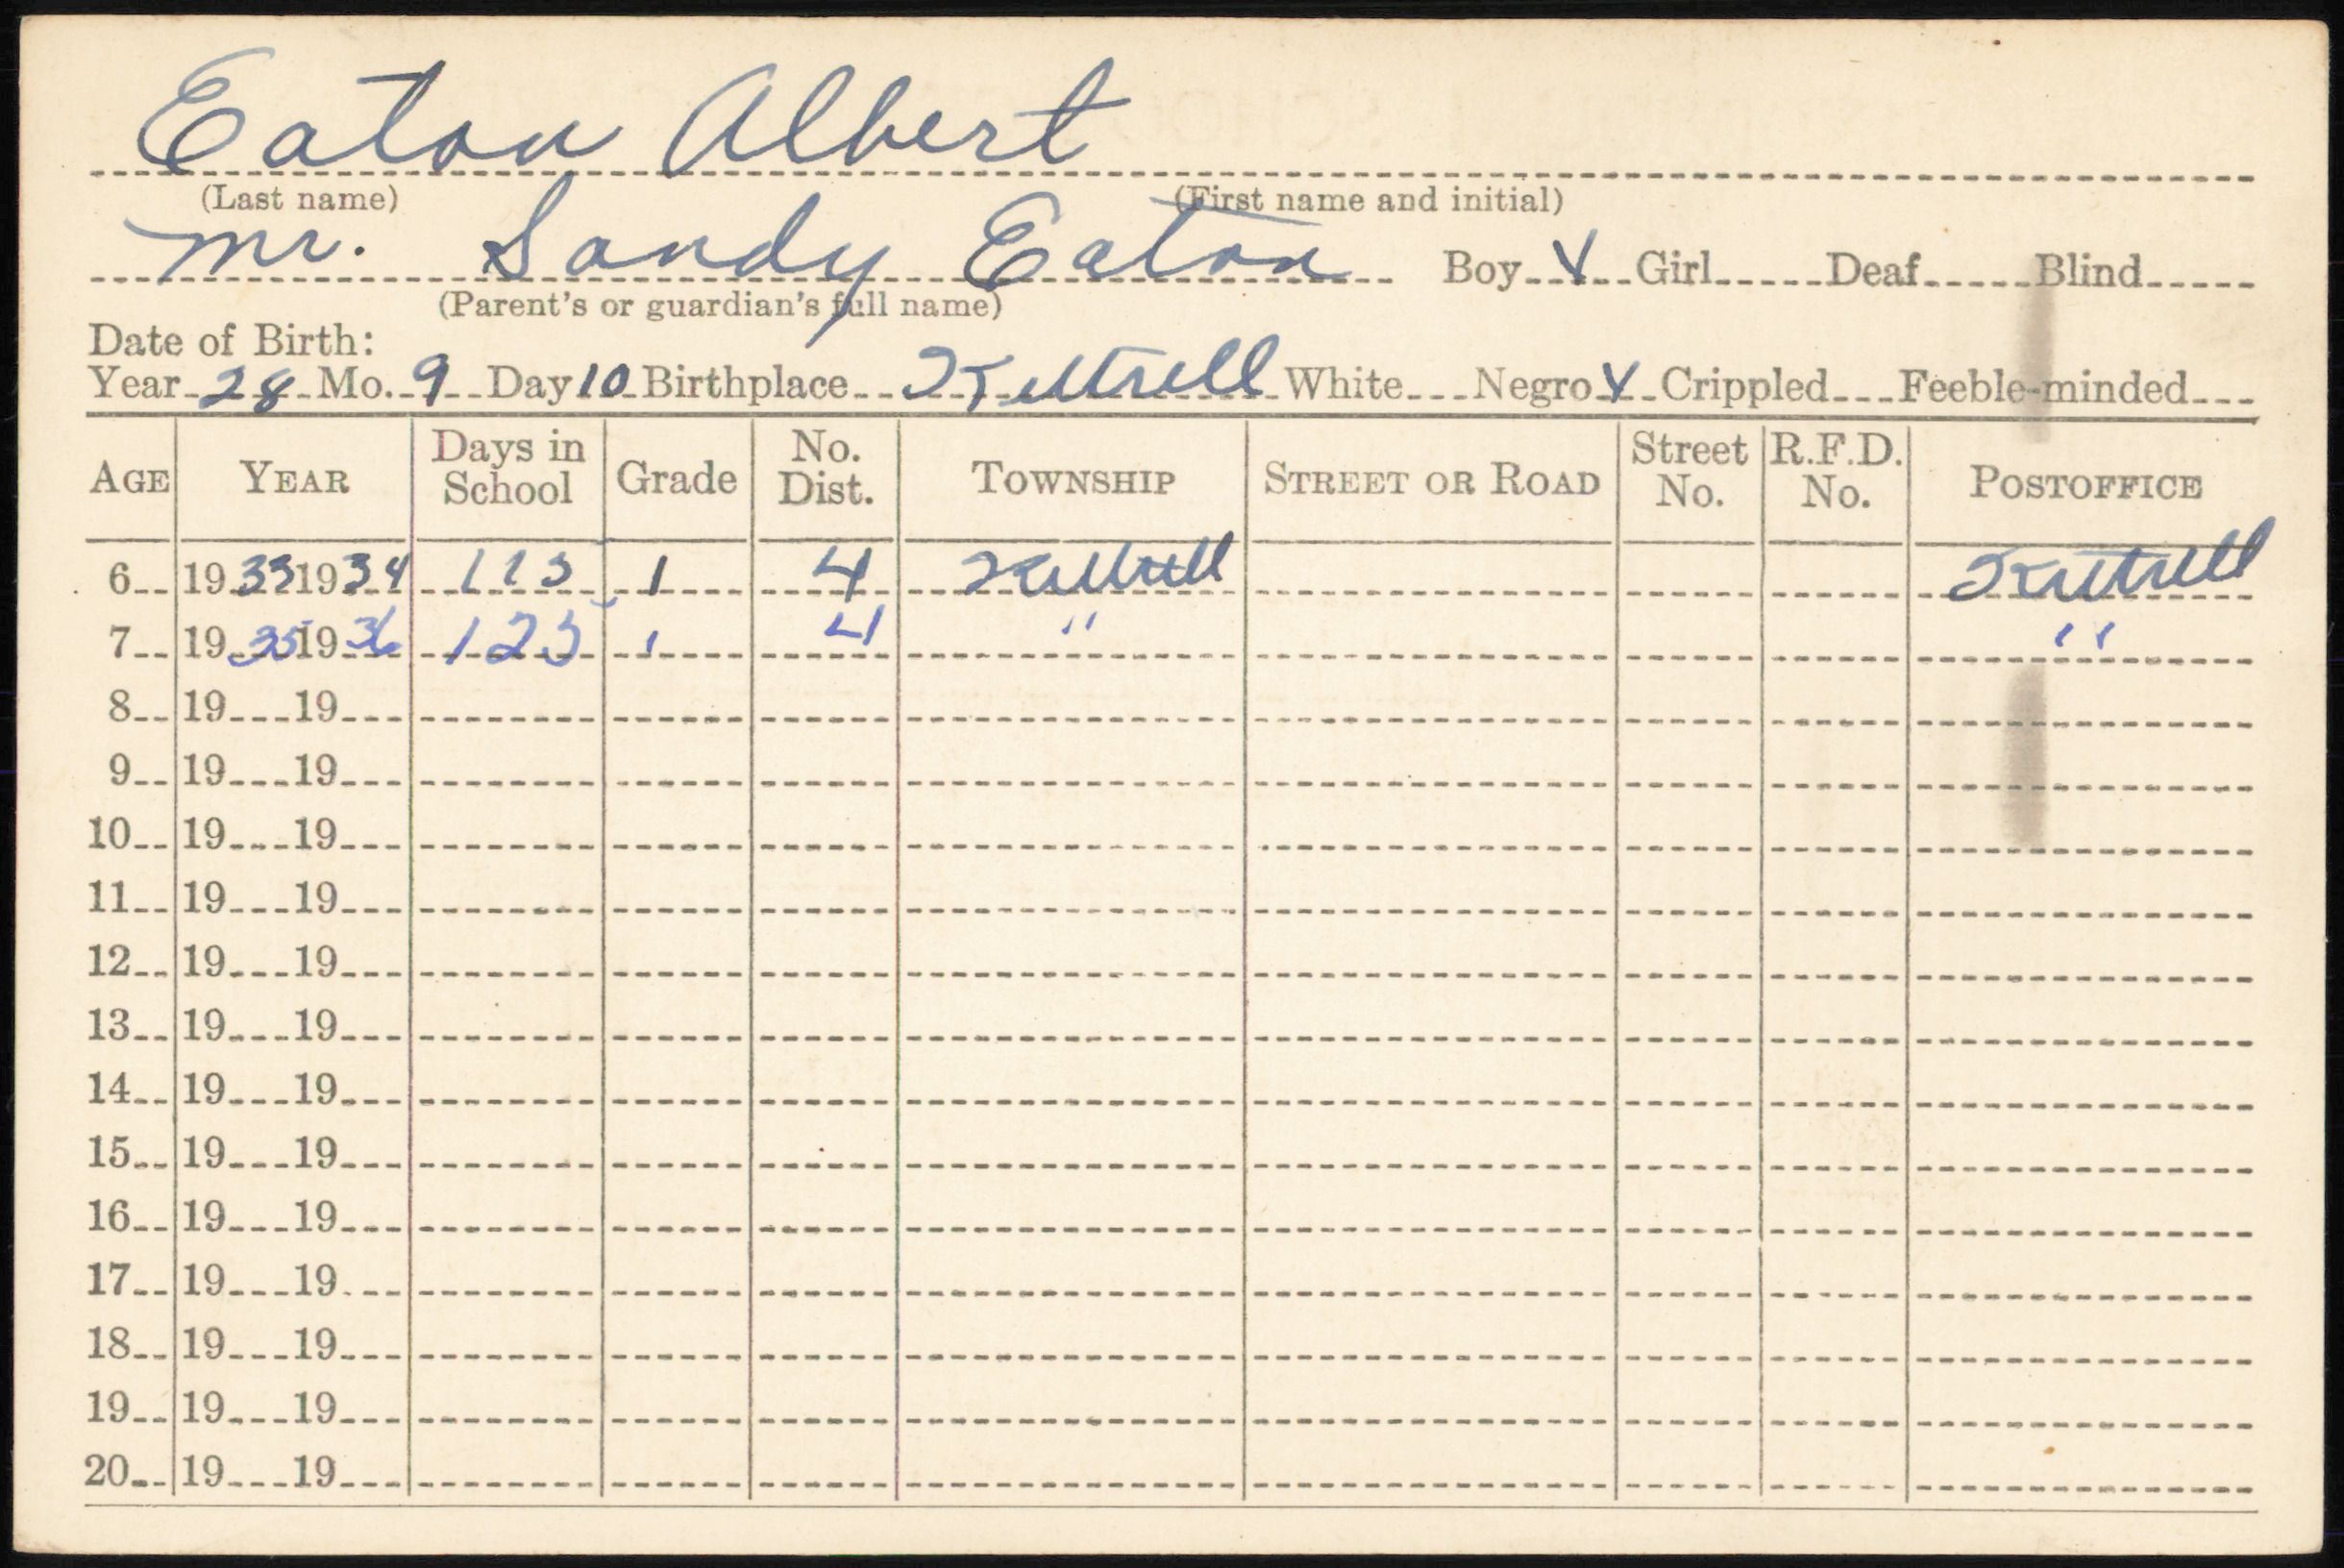 Eaton Albert
(Last name) (First name and initial)
Mr. Sandy Eaton Boy X Girl Deaf Blind
(Parent's or guardian's full name)
Date of Birth:
Year 28 Mo. 9 Day 10 Birthplace Kittrell White Negro X Crippled Feeble-minded
AGE YEAR Days in School Grade No. Dist. TOWNSHIP STREET OR ROAD Street No. R.F.D. No. POSTOFFICE
6 1933 1934 113 1 4 Kittrell Kittrell
7 1935 1936 123 1 4 " "
8 19 19
9 19 19
10 19 19
11 19 19
12 19 19
13 19 19
14 19 19
15 19 19
16 19 19
17 19 19
18 19 19
19 19 19
20 19 19